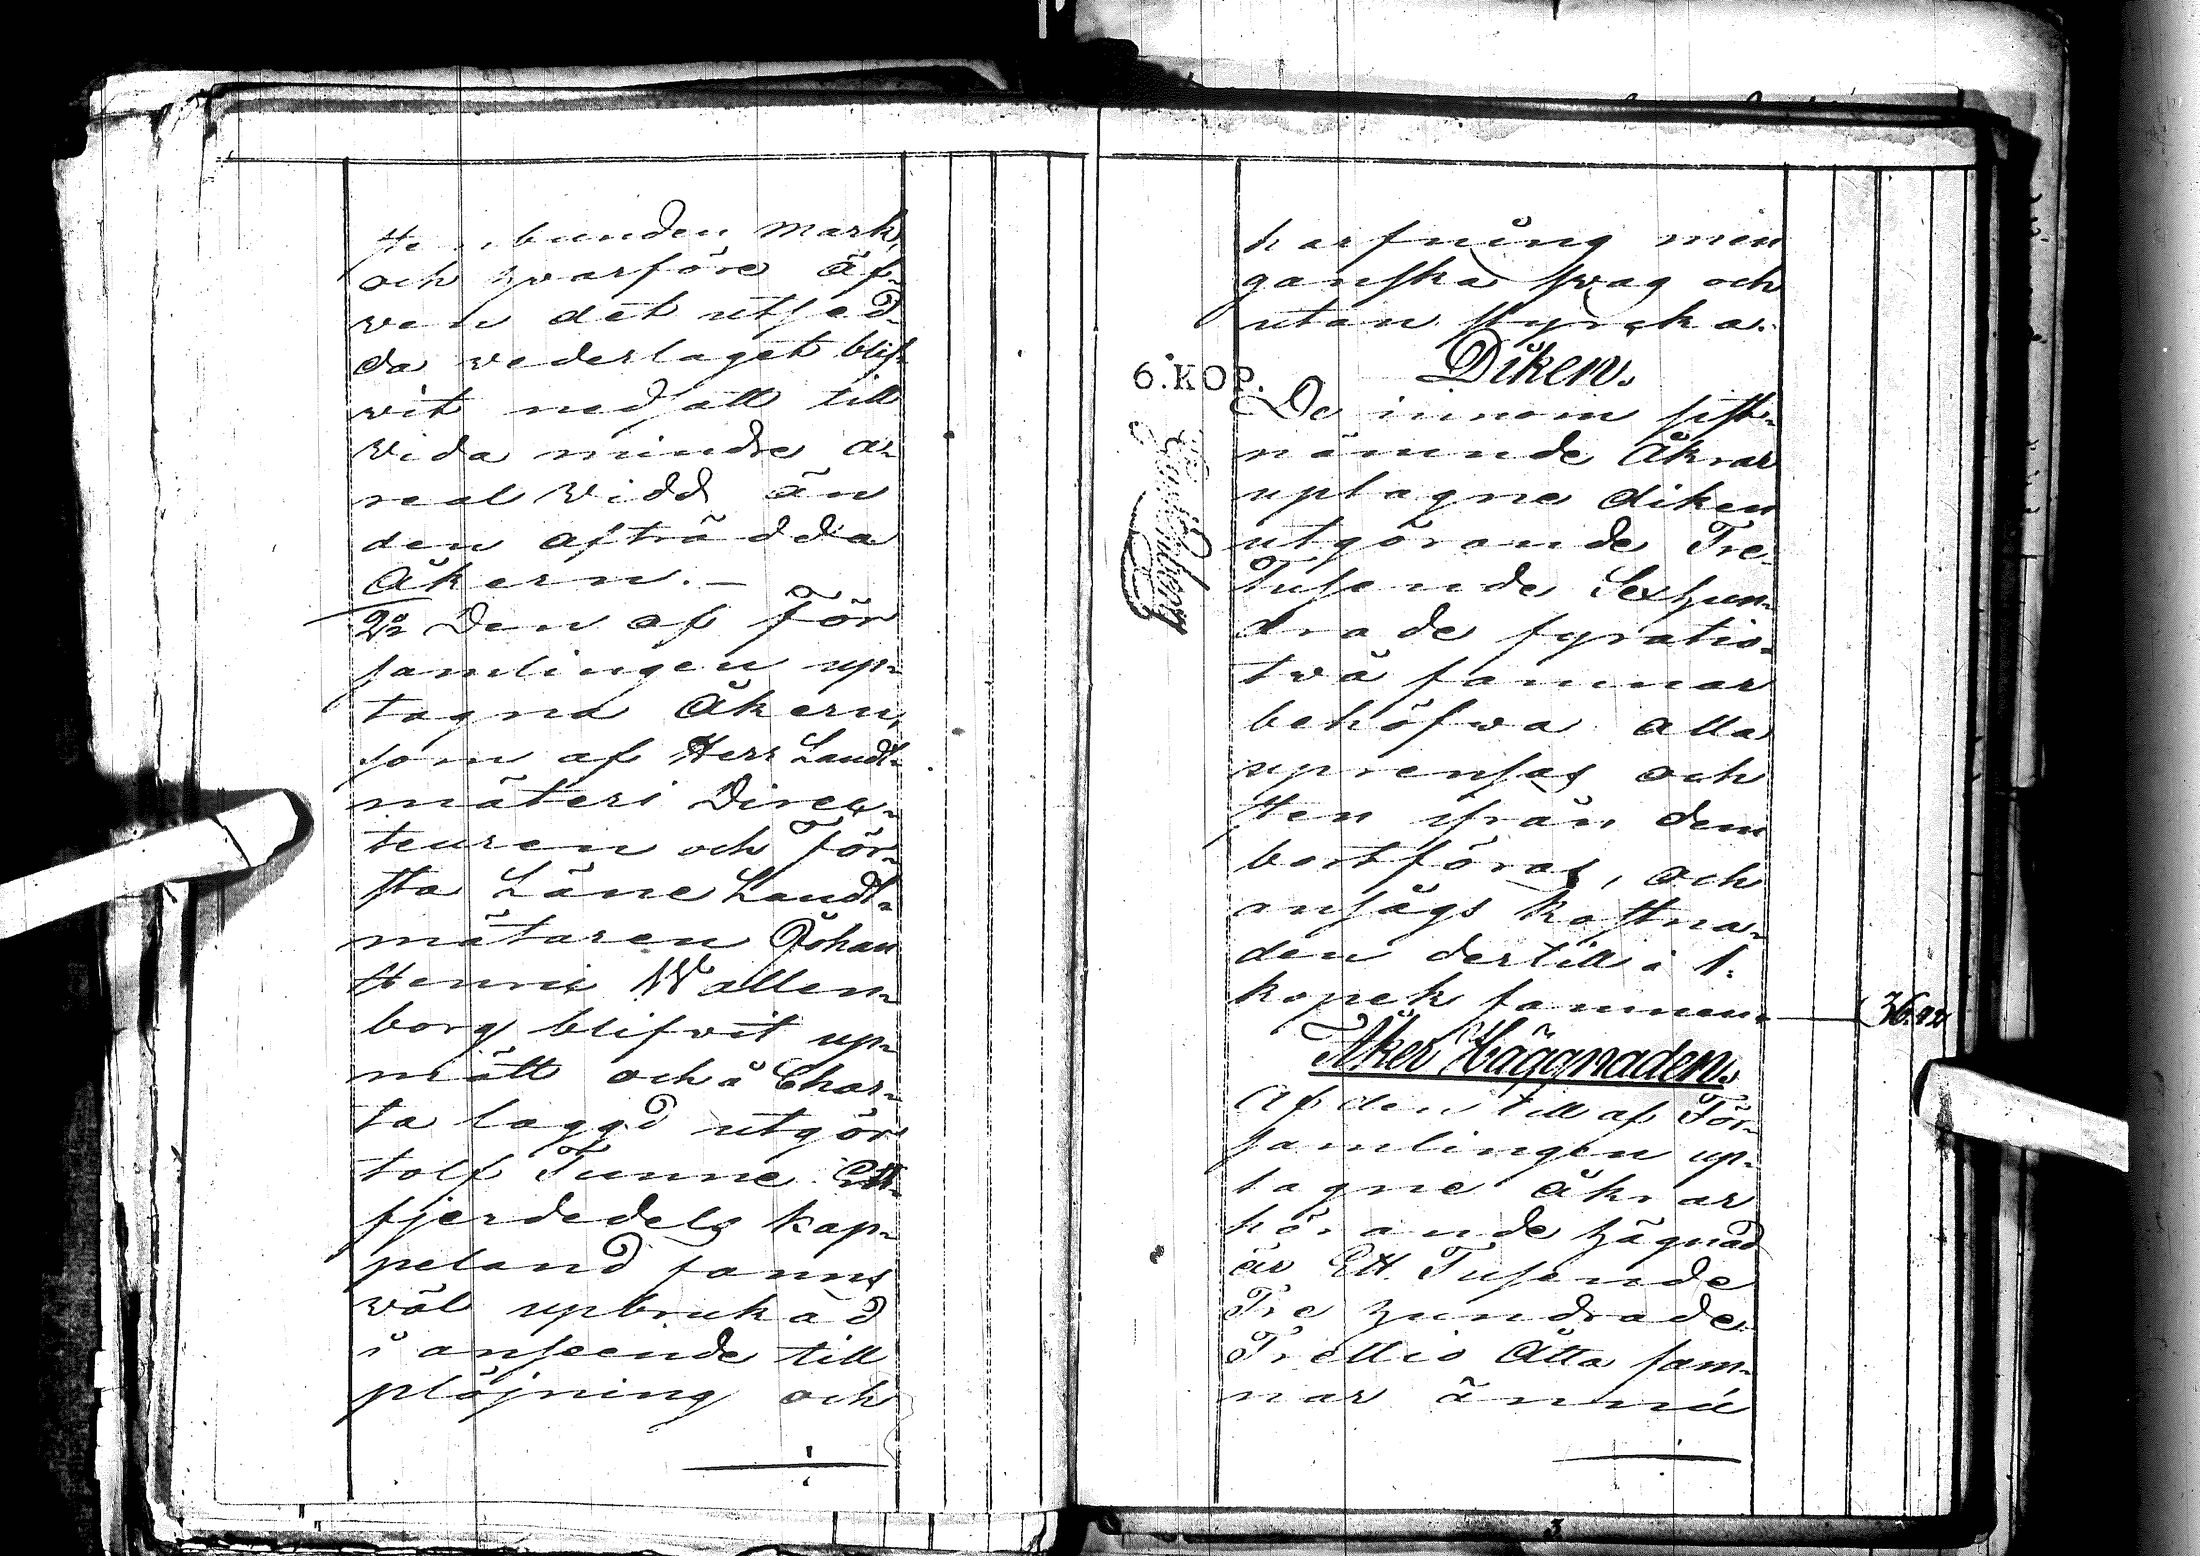 stenbunden mark,
och hvarföre äf-
wen det utsed-
da wederlaget blif-
wit nedsatt till
wida mindre a-
real widd än
den afträdda
Åkern. —
2o Den af För
samlingen up-
tagna Åkern,
som af Herr Landt-
mäteri Direc-
teuren och För-
sta Läne Landt-
mätaren Johan
Henric Wallen-
borg blifvit up-
mätt och å Char-
ta laggd utgör
tolf Tunne Ett
fjerdedels kap-
peland fanns
wäl upbrukad
i anseende till
plöjning och
harfning men
ganska swag och
utan styrcka.
Diken.
6.KOP.
De innom sist-
nämnde Åkrar
uptagne diken
utgörande Tre
Tusende Sexhun-
drade fyratio-
två famnar
behöfwa alla
uprensas och
sten ifrån dem
bortföras, och
ansågs kostna-
den dertill i 1.
kopek famnen 36.42
Åker Häggnaden.
Af den till af För-
samlingen up-
tagne åkrar
hörande hägnad
är Ett Tusende
Tre hundrade
Trettio Åtta fam-
nar ännu